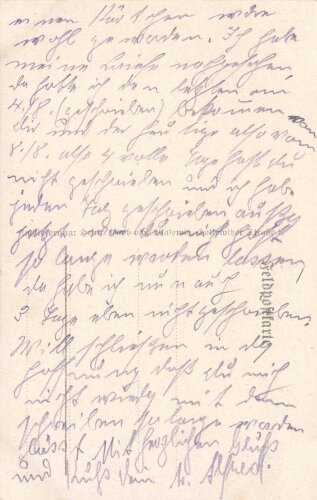 einen Kärtchen wäre
wohl geworden. Ich habe
meine Briefe nachgesehen
da habe ich den letzten am
4./8. (geschrieben) bekommen von
dir und der heutige also vom
8./8. also 4 volle Tage hast du
nicht geschrieben und ich habe
jeden Tag geschrieben
so lange warten lassen,
da habe ich nun auch
3 Tage eben nicht geschrieben.
Will schließen in der
Hoffnung daß du mich
nicht wieder mit dem
schreiben so lange warten
läßt Mit herzlichen Gruß
und Kuß dein
Feldpostkarte